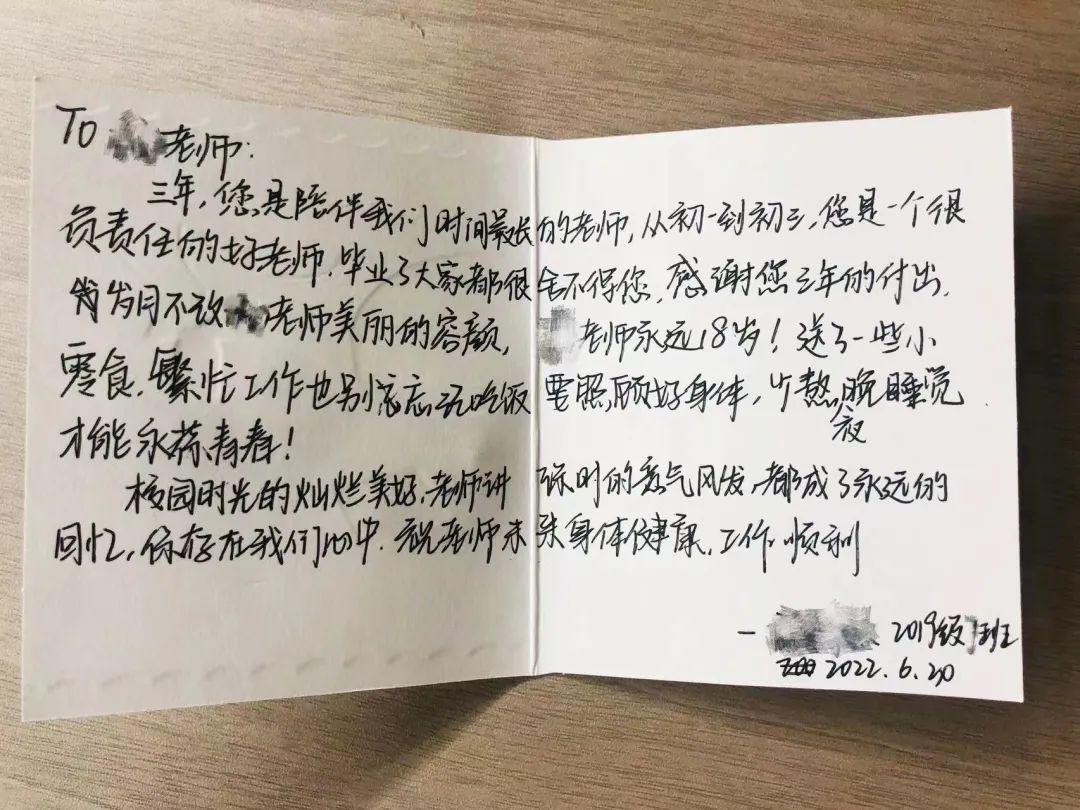 To 老师:
三年,您是陪伴我们时间最长的老师,从初一到初三,您是一个很
负责任的好老师.毕业了大家都很舍不得您,感谢您三年的付出.
岁月不改 老师美丽的容颜, 老师永远18岁!送了一些小
零食.繁忙工作也别忘吃饭 要照顾好身体,少熬夜晚睡觉
才能永葆青春!
校园时光的灿烂美好.老师讲 时的意气风发,都成了永远的
回忆,保存在我们心中.祝老师未来身体健康,工作顺利
— 2019级 班
2022.6.20